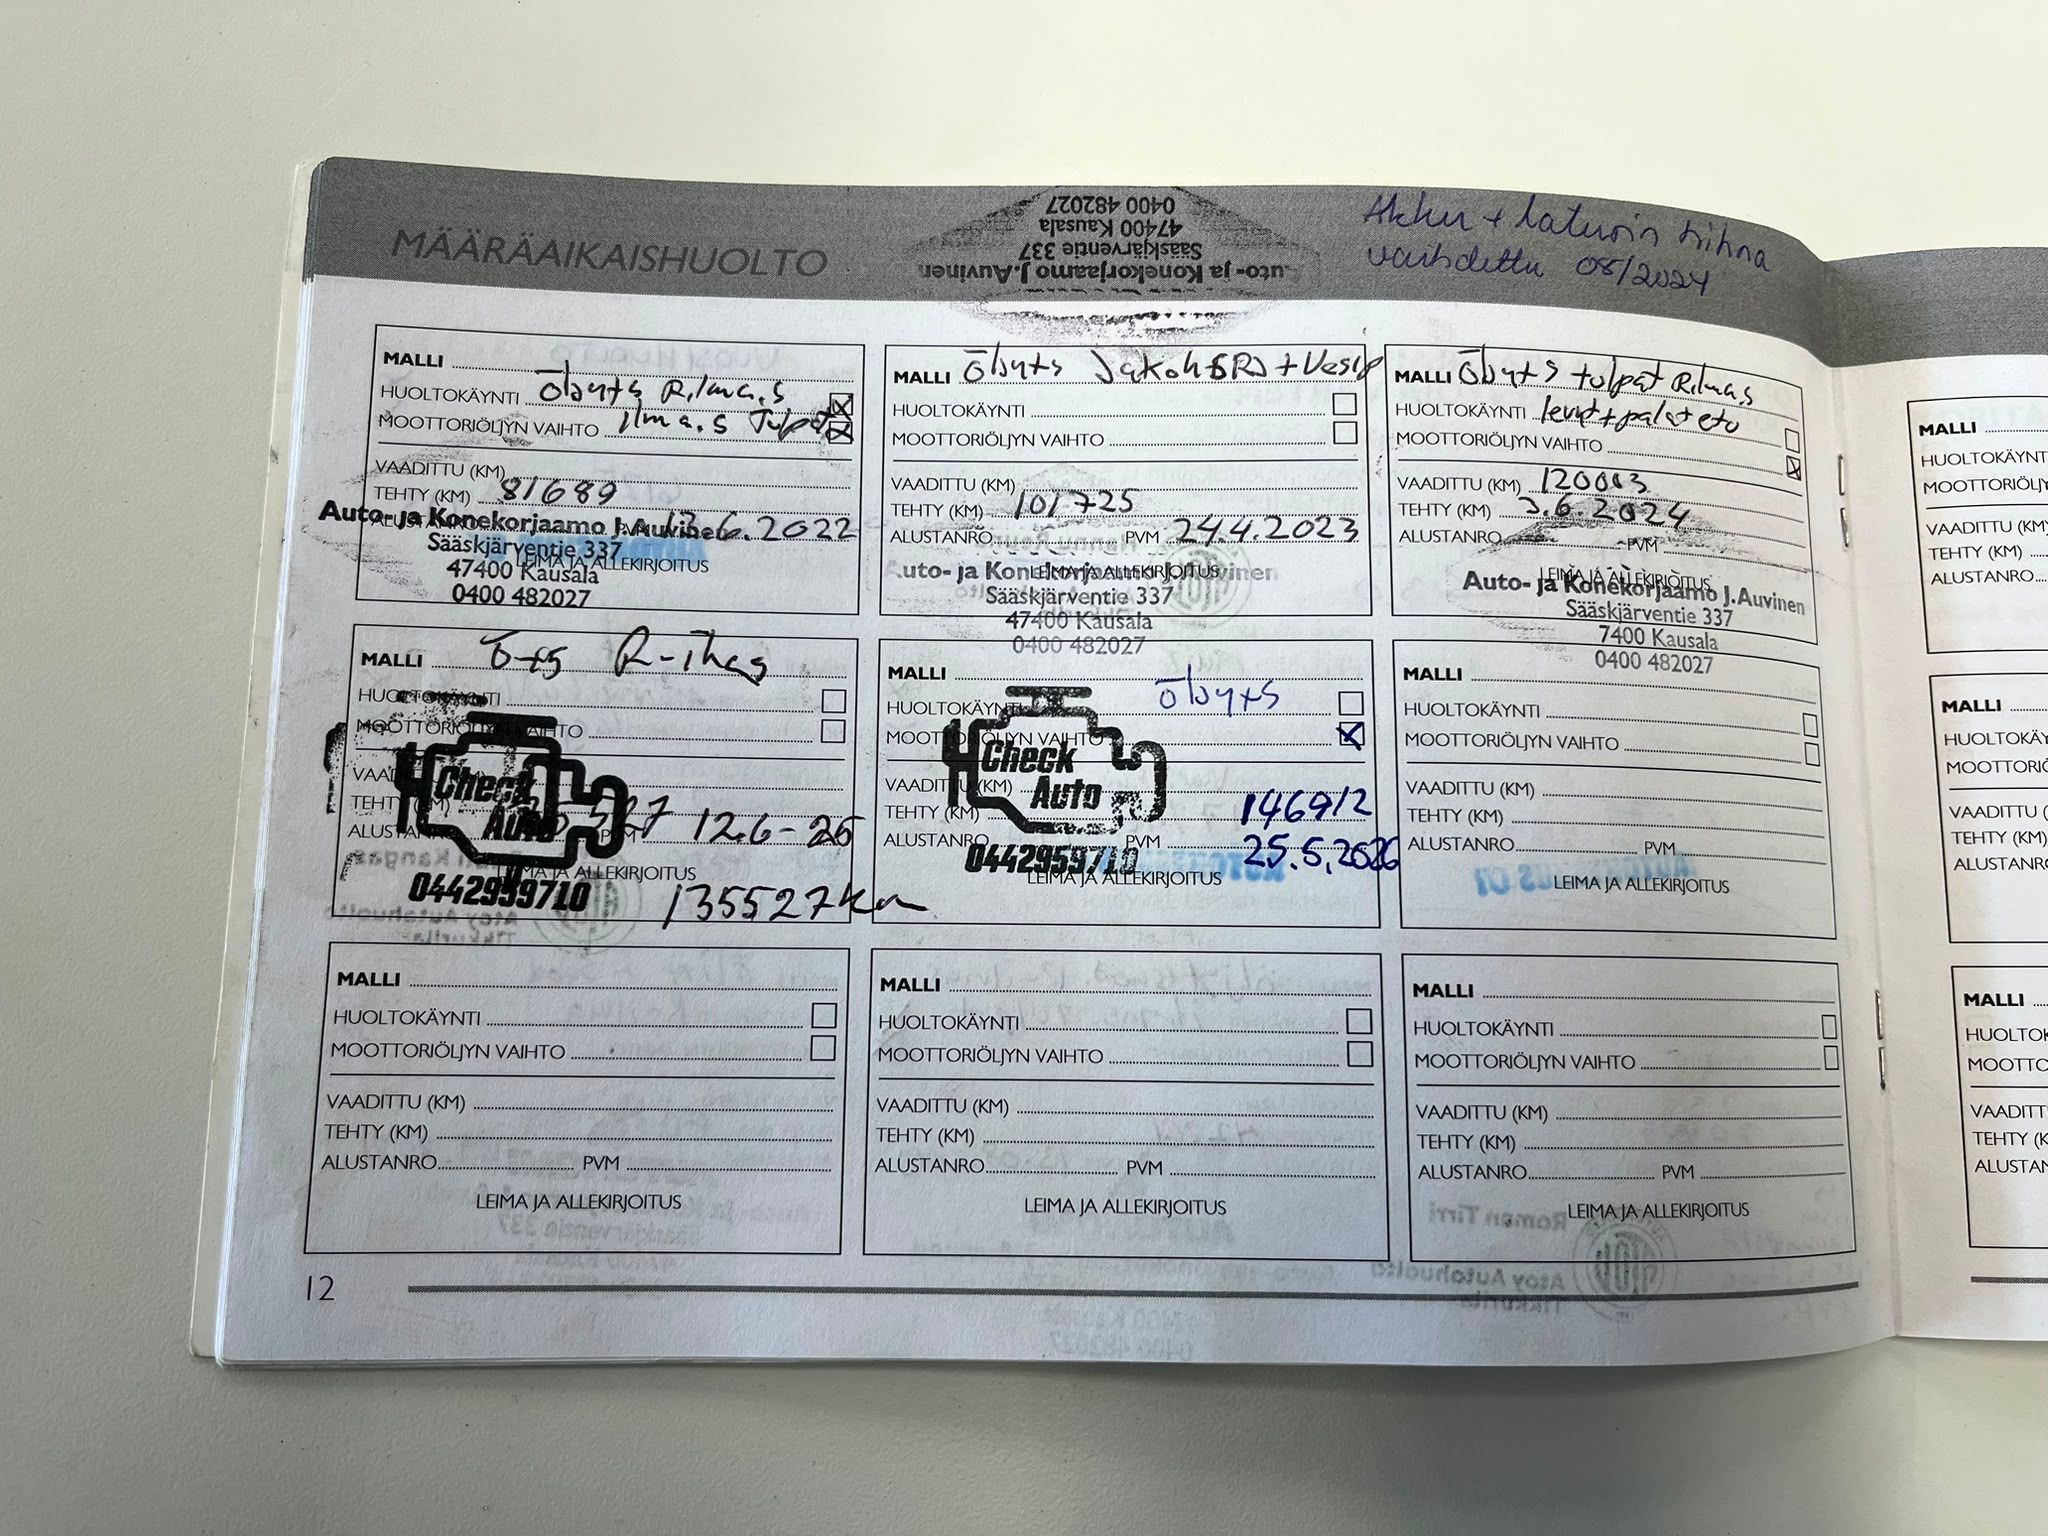 MÄÄRÄAIKAISHUOLTO
Auto- ja Konekorjaamo J.Auvinen
Sääskjärventie 337
47400 Kausala
0400 482027
Akku + laturin hihna
vaihdettu 08/2024
MALLI
HUOLTOKÄYNTI Öljy+s R.ilma.s
MOOTTORIÖLJYN VAIHTO ilma.s Tulpat
VAADITTU (KM)
TEHTY (KM) 81689
ALUSTANRO PVM 13.6.2022
LEIMA JA ALLEKIRJOITUS
Auto- ja Konekorjaamo J.Auvinen
Sääskjärventie 337
47400 Kausala
0400 482027
MALLI Öljy+s Jakoh+Vesip
HUOLTOKÄYNTI
MOOTTORIÖLJYN VAIHTO
VAADITTU (KM)
TEHTY (KM) 101725
ALUSTANRO PVM 24.4.2023
LEIMA JA ALLEKIRJOITUS
uto- ja Konekorjaamo J.Auvinen
Sääskjärventie 337
47400 Kausala
0400 482027
MALLI Öljy+s tulpat R.ilma.s
HUOLTOKÄYNTI levyt+palat etu
MOOTTORIÖLJYN VAIHTO
VAADITTU (KM) 120003
TEHTY (KM) 3.6.2024
ALUSTANRO PVM
LEIMA JA ALLEKIRJOITUS
Auto- ja Konekorjaamo J.Auvinen
Sääskjärventie 337
7400 Kausala
0400 482027
MALLI
HUOLTOKÄYNTI
MOOTTORIÖLJYN VAIHTO
TEHTY (KM)
ALUSTANRO PVM 12.6-25
Check
Auto
LEIMA JA ALLEKIRJOITUS
0442959710
135527km
MALLI
HUOLTOKÄYNTI öljy+s
MOOTTORIÖLJYN VAIHTO
VAADITTU (KM)
TEHTY (KM) 146912
ALUSTANRO PVM 25.5.2026
Check
Auto
0442959710
LEIMA JA ALLEKIRJOITUS
MALLI
HUOLTOKÄYNTI
MOOTTORIÖLJYN VAIHTO
VAADITTU (KM)
TEHTY (KM)
ALUSTANRO PVM
LEIMA JA ALLEKIRJOITUS
MALLI
HUOLTOKÄYNTI
MOOTTORIÖLJYN VAIHTO
VAADITTU (KM)
TEHTY (KM)
ALUSTANRO PVM
LEIMA JA ALLEKIRJOITUS
MALLI
HUOLTOKÄYNTI
MOOTTORIÖLJYN VAIHTO
VAADITTU (KM)
TEHTY (KM)
ALUSTANRO PVM
LEIMA JA ALLEKIRJOITUS
MALLI
HUOLTOKÄYNTI
MOOTTORIÖLJYN VAIHTO
VAADITTU (KM)
TEHTY (KM)
ALUSTANRO PVM
LEIMA JA ALLEKIRJOITUS
12
MALLI
HUOLTOKÄYNTI
MOOTTORIÖLJY
VAADITTU (KM)
TEHTY (KM)
ALUSTANRO
MALLI
HUOLTOKÄY
MOOTTORIÖ
VAADITTU (
TEHTY (KM)
ALUSTANR
MALLI
HUOLTOK
MOOTTO
VAADITT
TEHTY (K
ALUSTAN